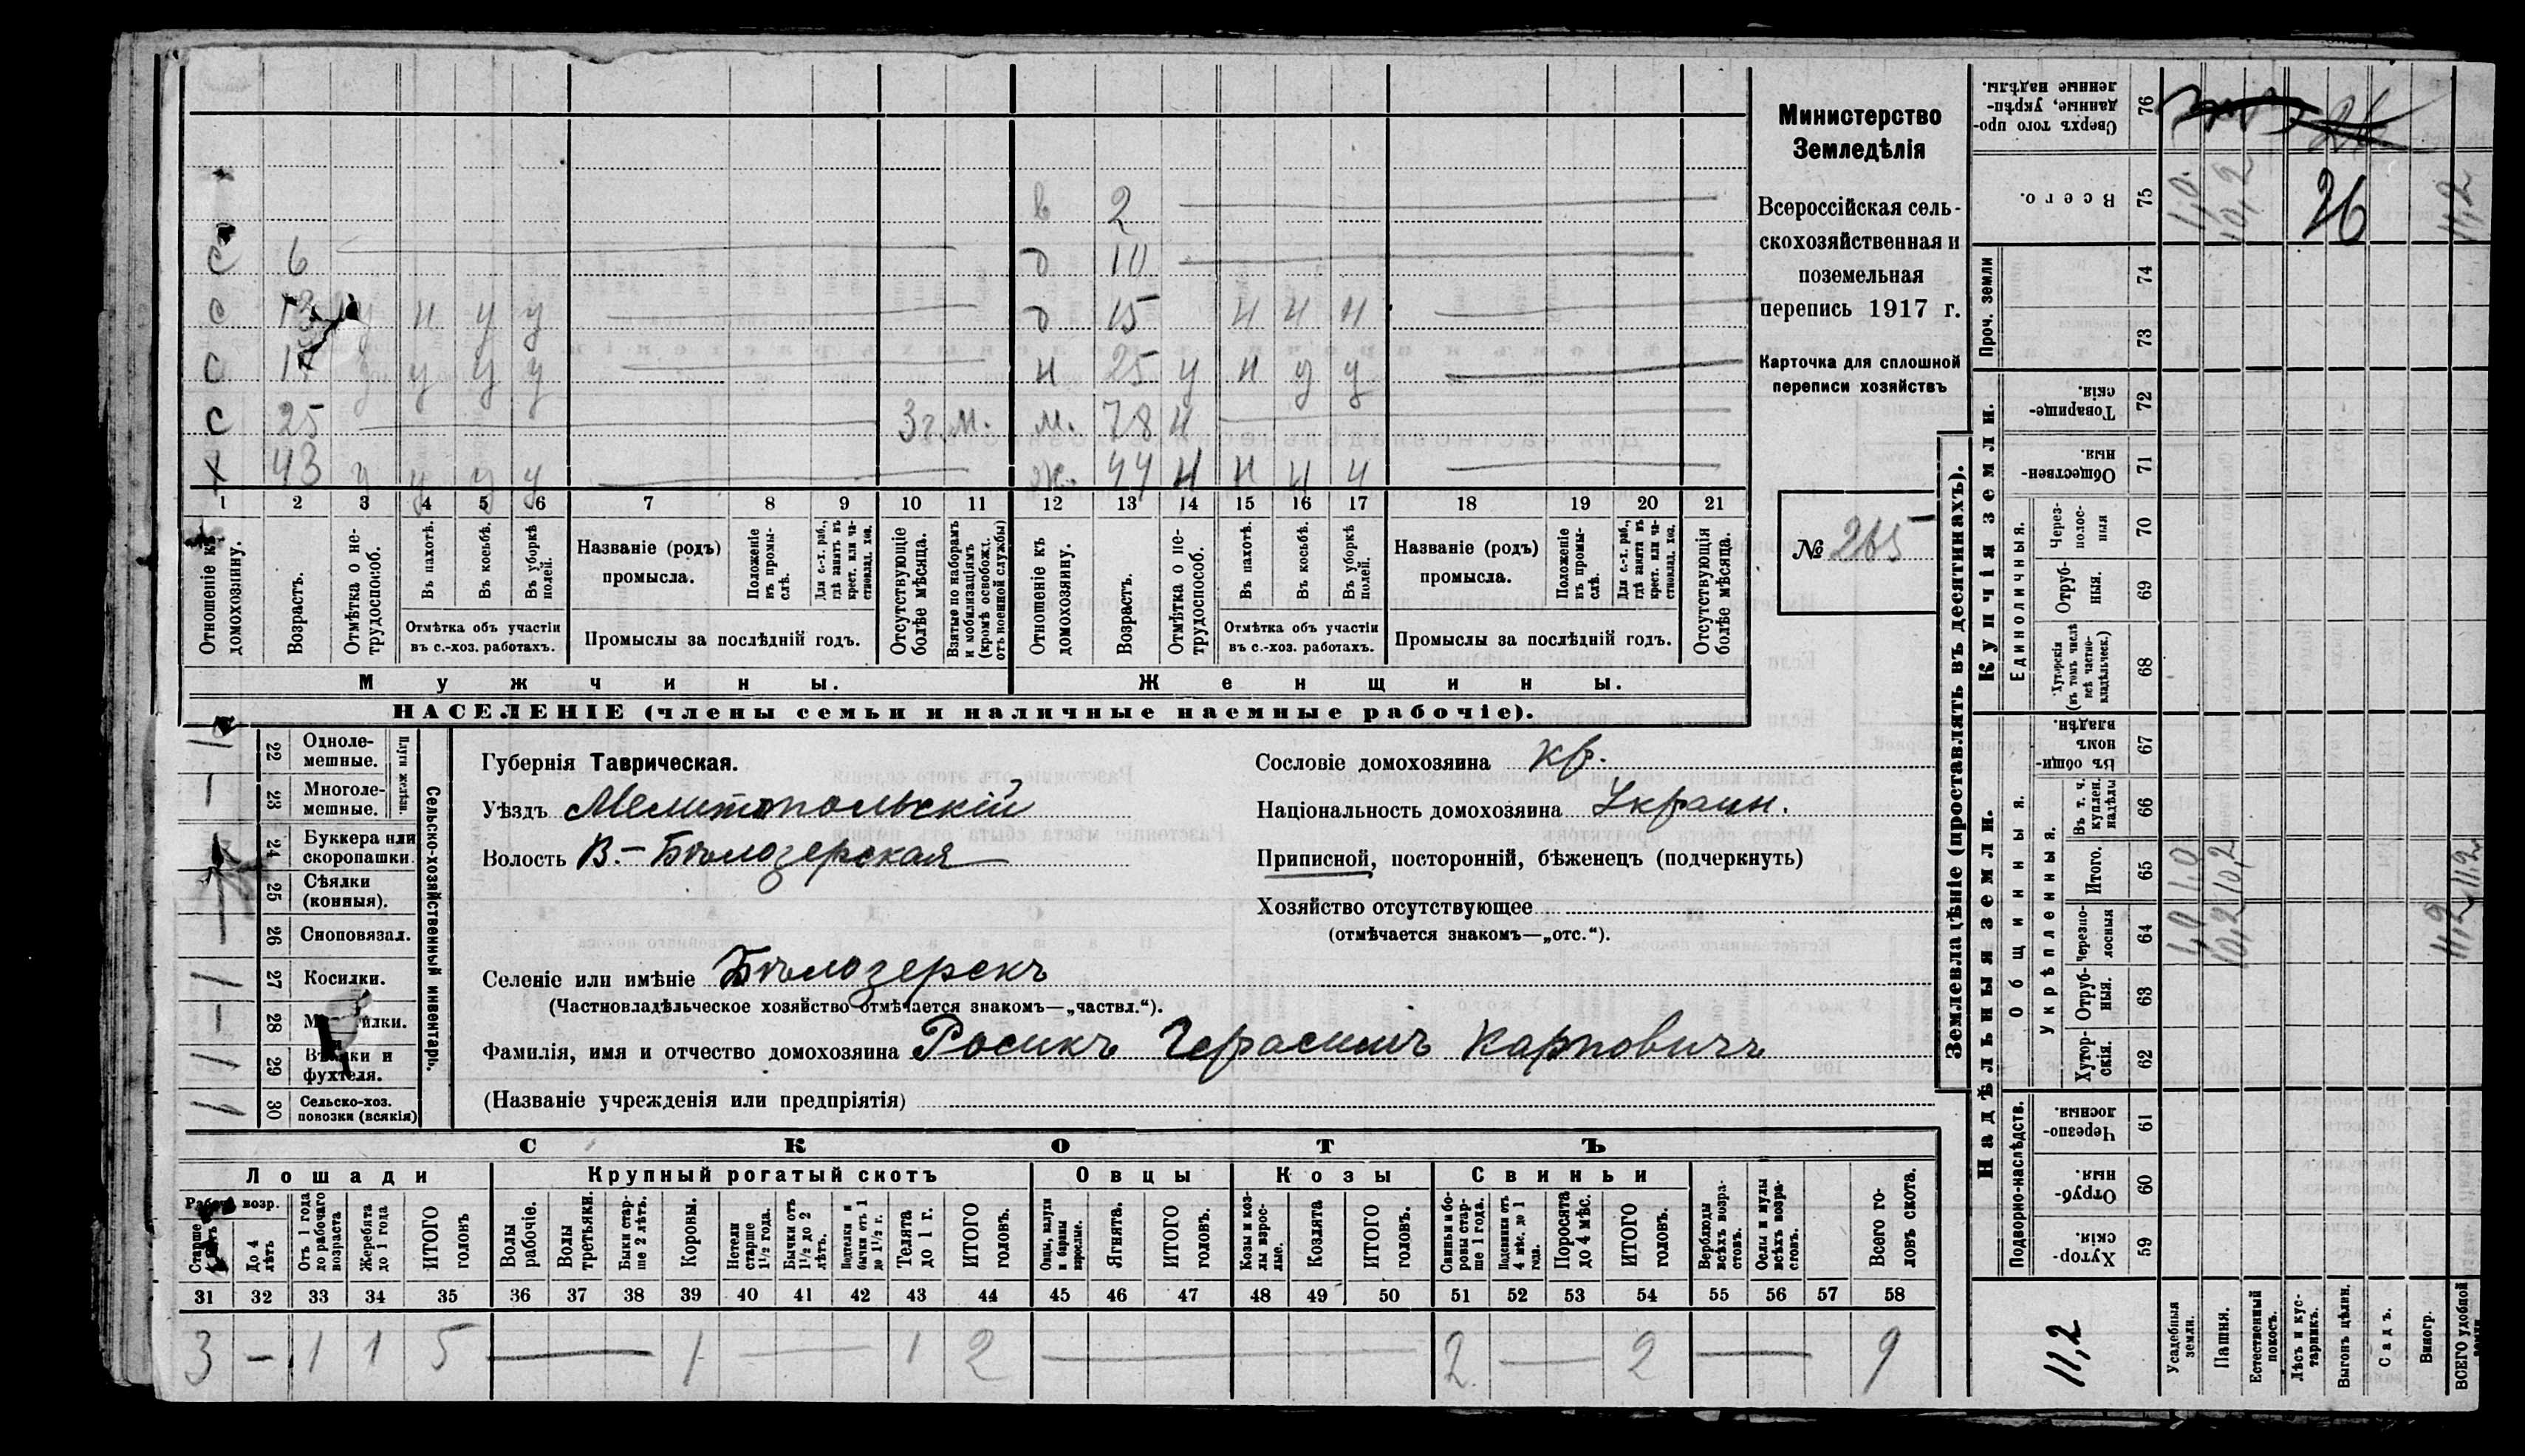 в 2
с 6 д 10
с 13 у н у у д 15 н н н
с 17 у у у у н 25 у н у у
с 25 3 г. м. м. 78 н
х 43 у у у у ж. 44 н н н н
1 2 3 4 5 6 7 8 9 10 11 12 13 14 15 16 17 18 19 20 21
Отношеніе къ домохозяину.
Возрастъ.
Отмѣтка о не-трудоспособ.
Въ пахотѣ.
Въ косьбѣ.
Въ уборкѣ полей.
Отмѣтка объ участіи
въ с.-хоз. работахъ.
Названіе (родъ)
промысла.
Положеніе въ промы-слѣ.
Для с.-х. раб., гдѣ занятъ въ крест. или ча-стновлад. хоз.
Промыслы за послѣдній годъ.
Отсутствующіе болѣе мѣсяца.
Взятые по наборамъ и мобилизаціямъ (кромѣ освобожд. отъ военной службы)
Отношеніе къ домохозяину.
Возрастъ.
Отмѣтка о не-трудоспособ.
Въ пахотѣ.
Въ косьбѣ.
Въ уборкѣ полей.
Отмѣтка объ участіи
въ с.-хоз. работахъ.
Названіе (родъ)
промысла.
Положеніе въ промы-слѣ.
Для с.-х. раб., гдѣ занята въ крест. или ча-стновлад. хоз.
Промыслы за послѣдній годъ.
Отсутствующія болѣе мѣсяца.
Мужчины. Женщины.
НАСЕЛЕНІЕ (члены семьи и наличные наемные рабочіе).
Министерство
Земледѣлія
Всероссійская сель-
скохозяйственная и
поземельная
перепись 1917 г.
Карточка для сплошной
переписи хозяйствъ
№ 265
Сельско-хозяйственный инвентарь.
Плуги желѣзн.
1 22 Одноле-мешные.
— 23 Многоле-мешные.
24 Буккера или скоропашки.
25 Сѣялки (конныя).
26 Сноповязал.
1 27 Косилки.
— 28
1 29 Вѣялки и фухтеля.
1 30 Сельско-хоз. повозки (всякія)
Губернія Таврическая.
Уѣздъ Мелитопольскій
Волость В.-Бѣлозерская
Сословіе домохозяина кр.
Національность домохозяина Украин.
Приписной, посторонній, бѣженецъ (подчеркнуть)
Хозяйство отсутствующее
(отмѣчается знакомъ—„отс.“).
Селеніе или имѣніе Бѣлозерскъ
(Частновладѣльческое хозяйство отмѣчается знакомъ—„частвл.“).
Фамилія, имя и отчество домохозяина Росикъ Герасимъ Карповичъ
(Названіе учрежденія или предпріятія)
СКОТЪ
Лошади Крупный рогатый скотъ Овцы Козы Свиньи
Рабоч. возр.
Старше
До 4 лѣтъ
Отъ 1 года до рабочаго возраста
Жеребята до 1 года
ИТОГО головъ
Волы рабочіе.
Волы третьяки.
Быки стар-ше 2 лѣтъ.
Коровы.
Нетели старше 1½ года.
Бычки отъ 1½ до 2 лѣтъ.
Подтелки и бычки отъ 1 до 1½ г.
Телята до 1 г.
ИТОГО головъ.
Овцы, валухи и бараны взрослые.
Ягнята.
ИТОГО головъ.
Козы и коз-лы взрос-лые.
Козлята
ИТОГО головъ.
Свиньи и бо-ровы стар-ше 1 года.
Подсвинки отъ 4 мѣс. до 1 года.
Поросята до 4 мѣс.
ИТОГО головъ.
Верблюды всѣхъ возра-стовъ.
Ослы и мулы всѣхъ возра-стовъ.
Всего го-ловъ скота.
31 32 33 34 35 36 37 38 39 40 41 42 43 44 45 46 47 48 49 50 51 52 53 54 55 56 57 58
3 — 1 1 5 — 1 — 1 2 — 2 — 2 — 9
Землевладѣніе (проставлять въ десятинахъ).
Купчія земли.
Надѣльныя земли.
Сверхъ того про-данные, укрѣп-ленные надѣлы. 76
Всего. 75 1,0 10,2 26 11,2
Проч. земли 74 73
Товарище-скія. 72
Обществен-ныя. 71
Единоличныя.
Через-полос-ныя 70
Отруб-ныя. 69
Хуторскія (въ томъ числѣ всѣ частно-владѣльческ.) 68
Общинныя.
Въ общи-номъ владѣн. 67
Укрѣпленныя.
Въ т. ч. куплен. надѣлы 66
Итого. 65 1,0 10,2 11,2
Черезпо-лосныя 64 1,0 10,2 11,2
Отруб-ныя. 63
Хутор-скія. 62
Подворно-наслѣдств.
Черезпо-лосныя. 61
Отруб-ныя. 60
Хутор-скія. 59
11,2
Усадебныя земли.
Пашня.
Естественный покосъ.
Лѣсъ и кус-тарникъ.
Выгонъ цѣлин.
Садъ.
Виногр.
ВСЕГО удобной